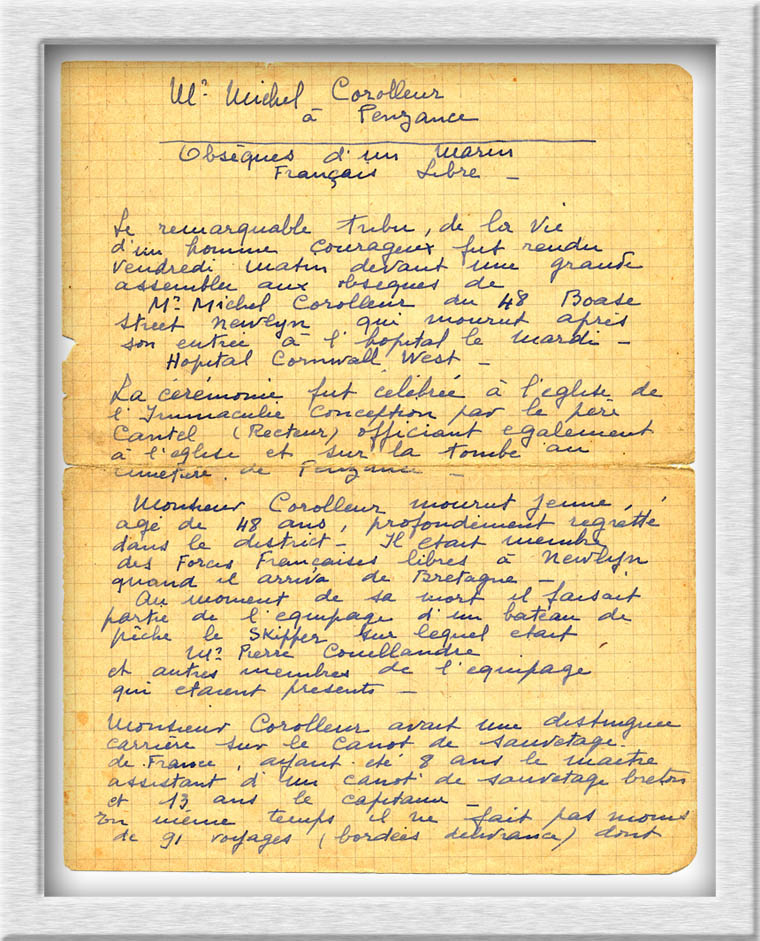 Mr Michel Corolleur
à Penzance
Obsèques d'un Marin
Français Libre –
Le remarquable tribu, de la vie
d'un homme courageux fut rendu
vendredi matin devant une grande
assemblee aux obsèques de
Mr Michel Corolleur du 48 Boase
Street Newlyn qui mourut après
son entrée à l'hopital le mardi –
Hopital Cornwall West –
La cérémonie fut célébrée à l'eglise de
l'Immaculée Conception par le père
Cantel (Recteur) officiant egalement
à l'eglise et sur la tombe au
cimetière de Penzance –
Monsieur Corolleur mourut jeune,
agé de 48 ans, profondément regretté
dans le district – Il etait membre
des Forces Françaises libres à Newlyn
quand il arriva de Bretagne –
Au moment de sa mort il faisait
partie de l'equipage d'un bateau de
pêche le Skipper sur lequel etait
Mr Pierre Couillandre
et autres membres de l'equipage
qui etaient présents –
Monsieur Corolleur avait une distinguee
carrière sur le Canot de sauvetage
de France, ayant été 8 ans le maitre
assistant d'un canot de sauvetage breton
et 13 ans le capitaine –
En même temps il ne fait pas moins
de 91 voyages (bordées délivrance) dont